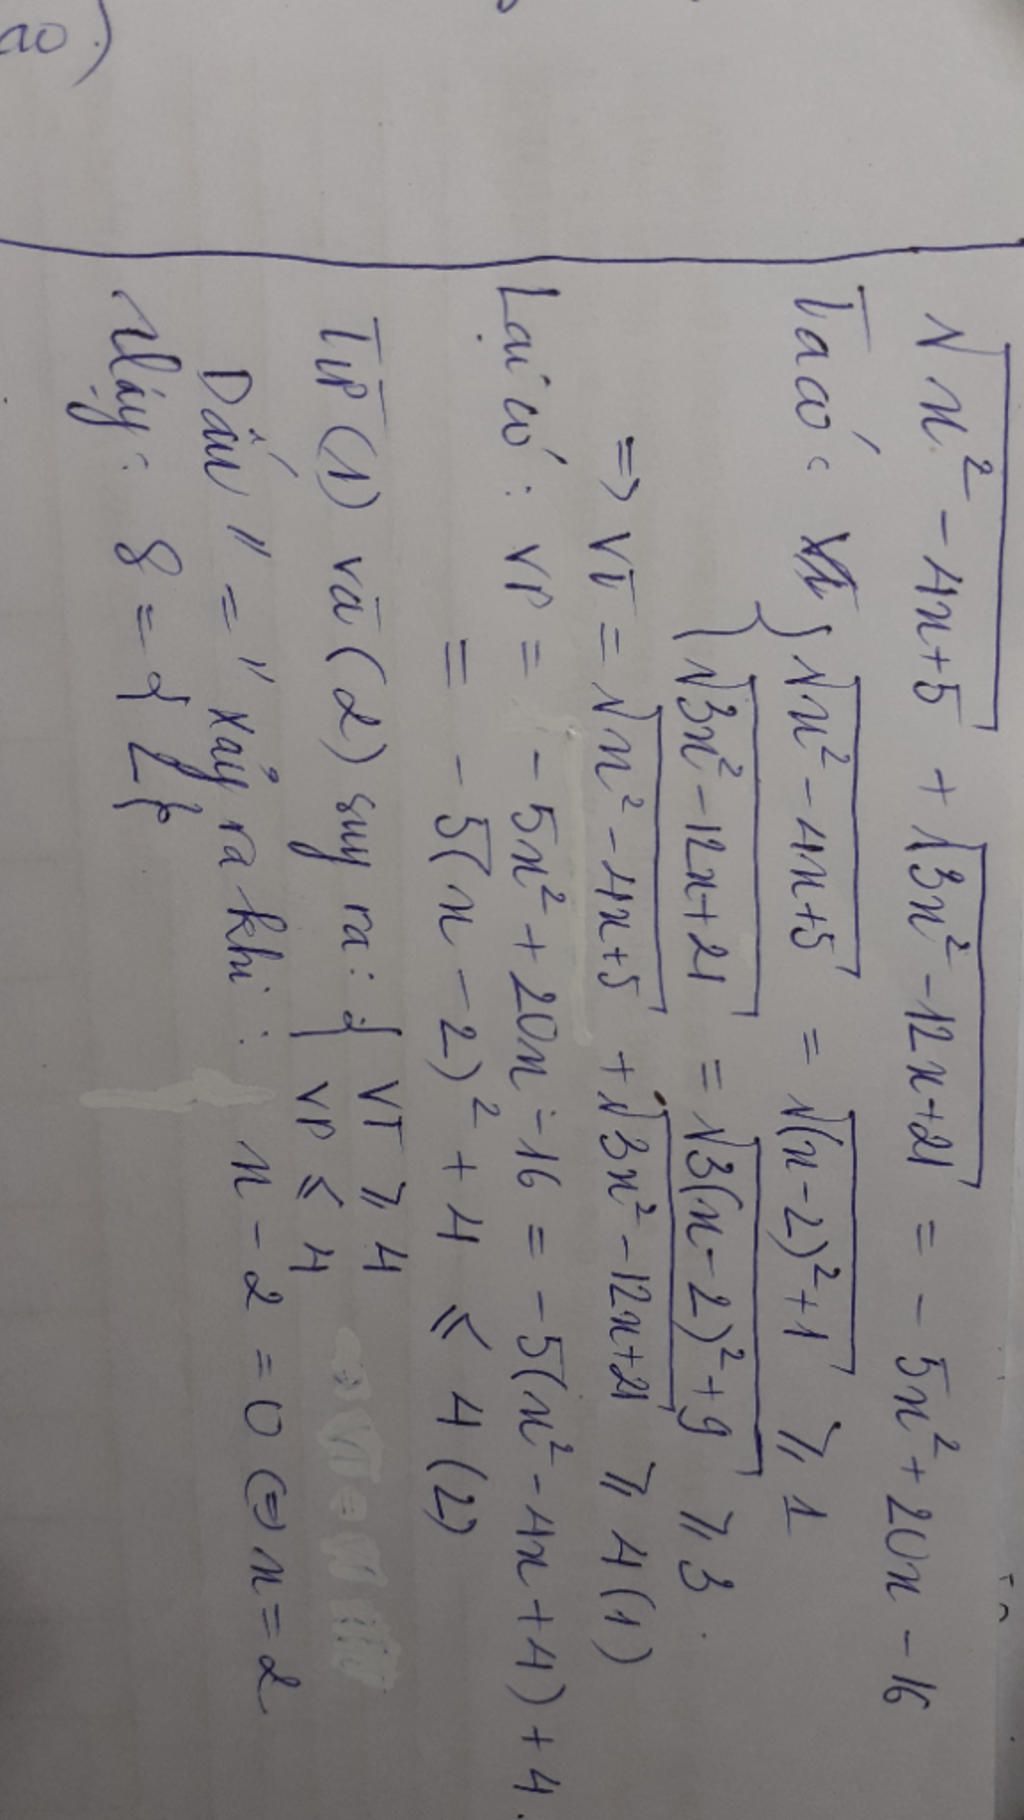 ao.)
√x² - 4x + 5 + √3x² - 12x + 21 = - 5x² + 20x - 16
Ta có: { √x² - 4x + 5 = √(x - 2)² + 1 ⩾ 1
√3x² - 12x + 21 = √3(x - 2)² + 9 ⩾ 3.
=> VT = √x² - 4x + 5 + √3x² - 12x + 21 ⩾ 4 (1)
Lại có: VP = - 5x² + 20x - 16 = - 5(x² - 4x + 4) + 4.
= - 5(x - 2)² + 4 ⩽ 4 (2)
Từ (1) và (2) suy ra: { VT ⩾ 4
VP ⩽ 4
Dấu "=" xảy ra khi: x - 2 = 0 ⇔ x = 2
Vậy: S = {2}